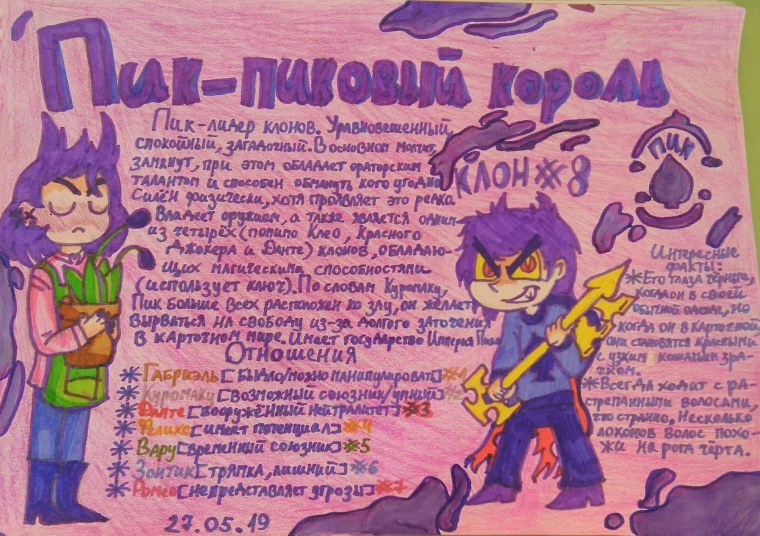 Пик-пиковый король
Пик-лидер клонов. Уравновешенный,
спокойный, загадочный. В основном молчит,
замкнут, при этом обладает ораторским
талантом и способен обмануть кого угодно.
Силён физически, хотя проявляет это редко.
Владеет оружием, а также является одним
из четырёх (помимо Клео, Красного
Джокера и Данте) клонов, обладаю-
щих магическими способностями
(использует ключ). По словам Куромаку,
Пик больше всех расположен ко злу, он желает
вырваться на свободу из-за долгого заточения
в карточном мире. Имеет государство Империя Пика
Отношения
*Габриэль [быдло/можно манипулировать] #1
*Куромаку [возможный союзник/умный] #2
*Данте [вооружённый нейтралитет] #3
*Феликс [имеет потенциал] #4
*Вару [временный союзник] #5
*Зонтик [тряпка, лишний] #6
*Ромео [не представляет угрозы] #7
27.05.19
КЛОН #8
ПИК
Интересные
факты:
*Его глаза чёрные,
когда он в своей
обычной одежде, но
когда он в карточной,
они становятся кровавыми
с узким кошачьим зра-
чком.
*Всегда ходит с ра-
стрепанными волосами,
что странно, несколько
локонов волос похо-
жи на рога чёрта.